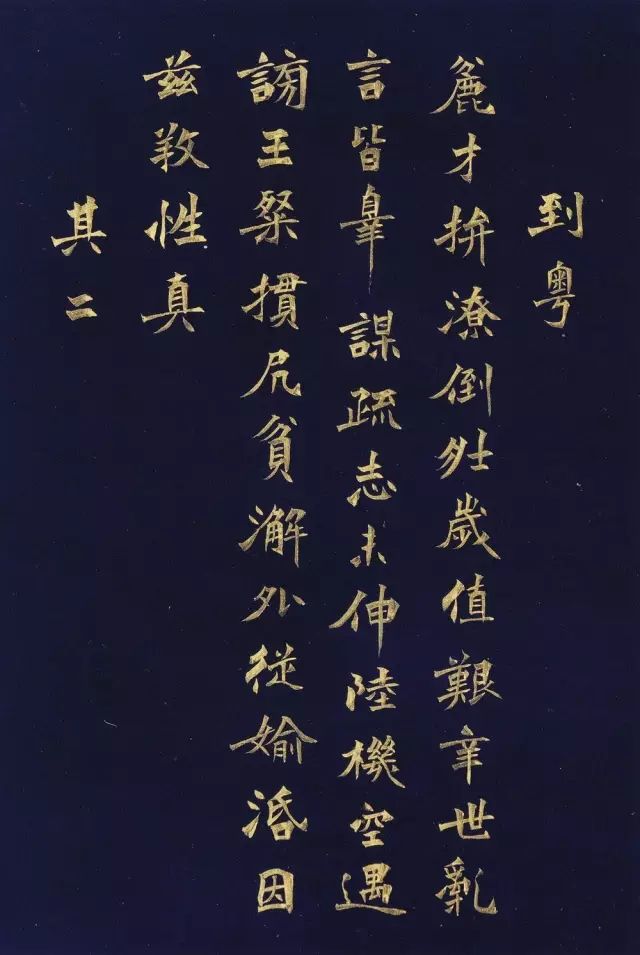 到粵
麄才拚潦倒壯歲值艱辛世亂
言皆辠謀疏志未伸陸機空遇
謗王粲摜凥貧澥外從媮活因
茲養性真
其二